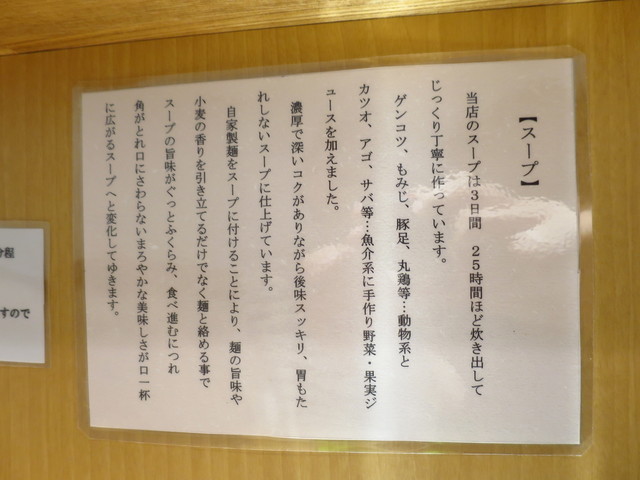 【スープ】
当店のスープは３日間　２５時間ほど炊き出して
じっくり丁寧に作っています。
ゲンコツ、もみじ、豚足、丸鶏等…動物系と
カツオ、アゴ、サバ等…魚介系に手作り野菜・果実ジ
ュースを加えました。
濃厚で深いコクがありながら後味スッキリ、胃もた
れしないスープに仕上げています。
自家製麺をスープに付けることにより、麺の旨味や
小麦の香りを引き立てるだけでなく麺と絡める事で
スープの旨味がぐっとふくらみ、食べ進むにつれ
角がとれ口にさわらないまろやかな美味しさが口一杯
に広がるスープへと変化してゆきます。
分程
すので